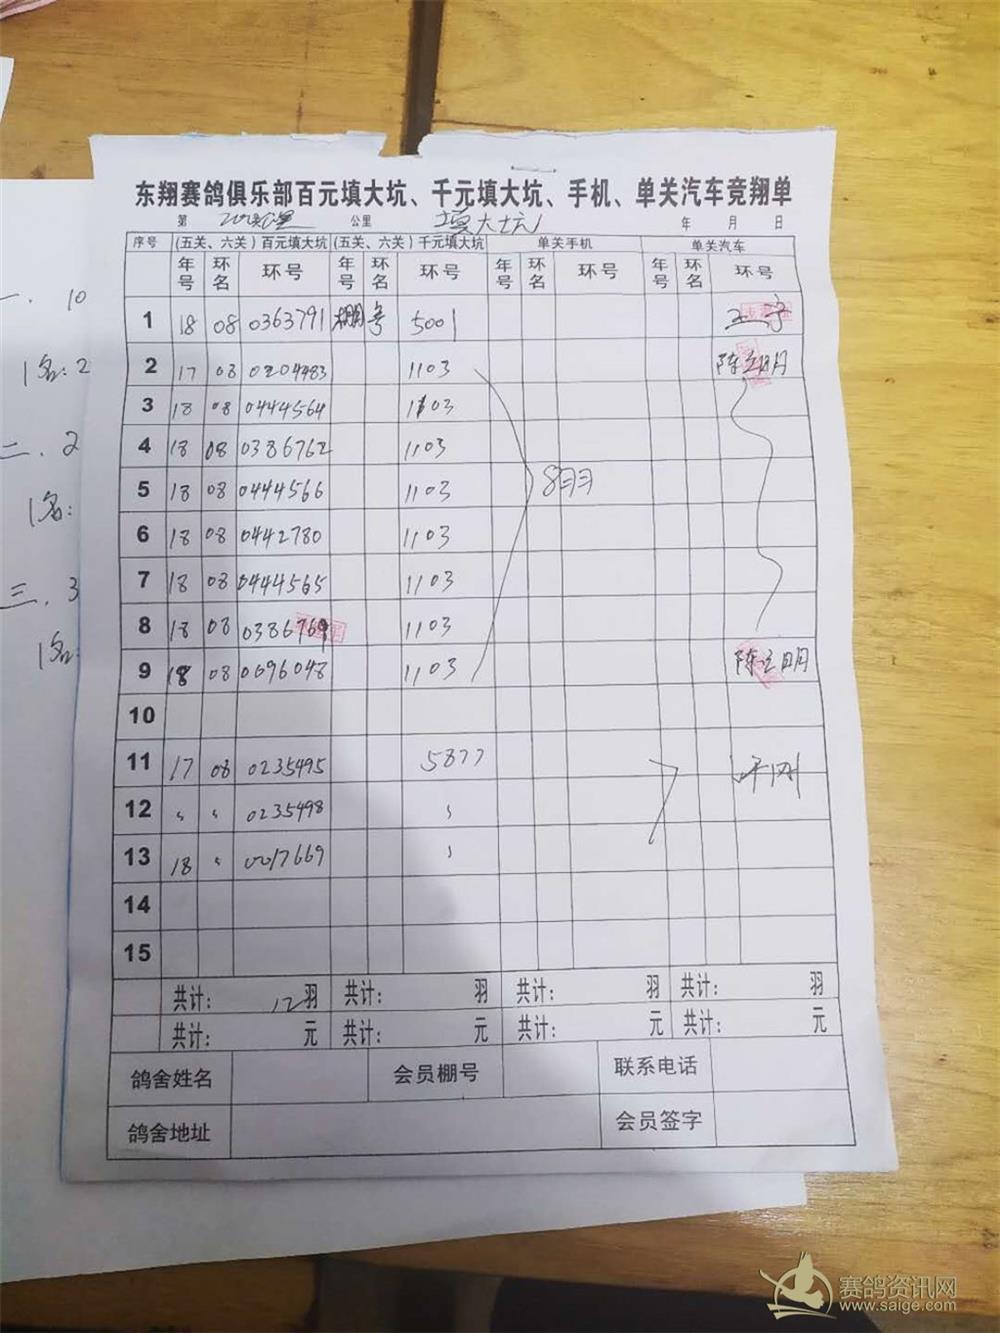 东翔赛鸽俱乐部百元填大坑、千元填大坑、手机、单关汽车竞翔单
第 公里 填大坑 年 月 日
序号 (五关、六关)百元填大坑 (五关、六关)千元填大坑 单关手机 单关汽车
年号 环名 环号 年号 环名 环号 年号 环名 环号 年号 环名 环号
1 18 08 0363791 棚号 5001 王宇
2 17 08 0204983 1103 陈立明
3 18 08 0444564 1103
4 18 08 0386762 1103
5 18 08 0444566 1103 8羽
6 18 08 0442780 1103
7 18 08 0444565 1103
8 18 08 0386769 1103
9 18 08 0696048 1103 陈立明
10
11 17 08 0235495 5877
12 〃 〃 0235498 〃
13 18 〃 0017669 〃
14
15
共计: 12羽 共计: 羽 共计: 羽 共计: 羽
共计: 元 共计: 元 共计: 元 共计: 元
鸽舍姓名 会员棚号 联系电话
鸽舍地址 会员签字
一. 10
1名: 2
二. 2
1名:
三. 3
1名:
赛鸽资讯网
www.saige.com